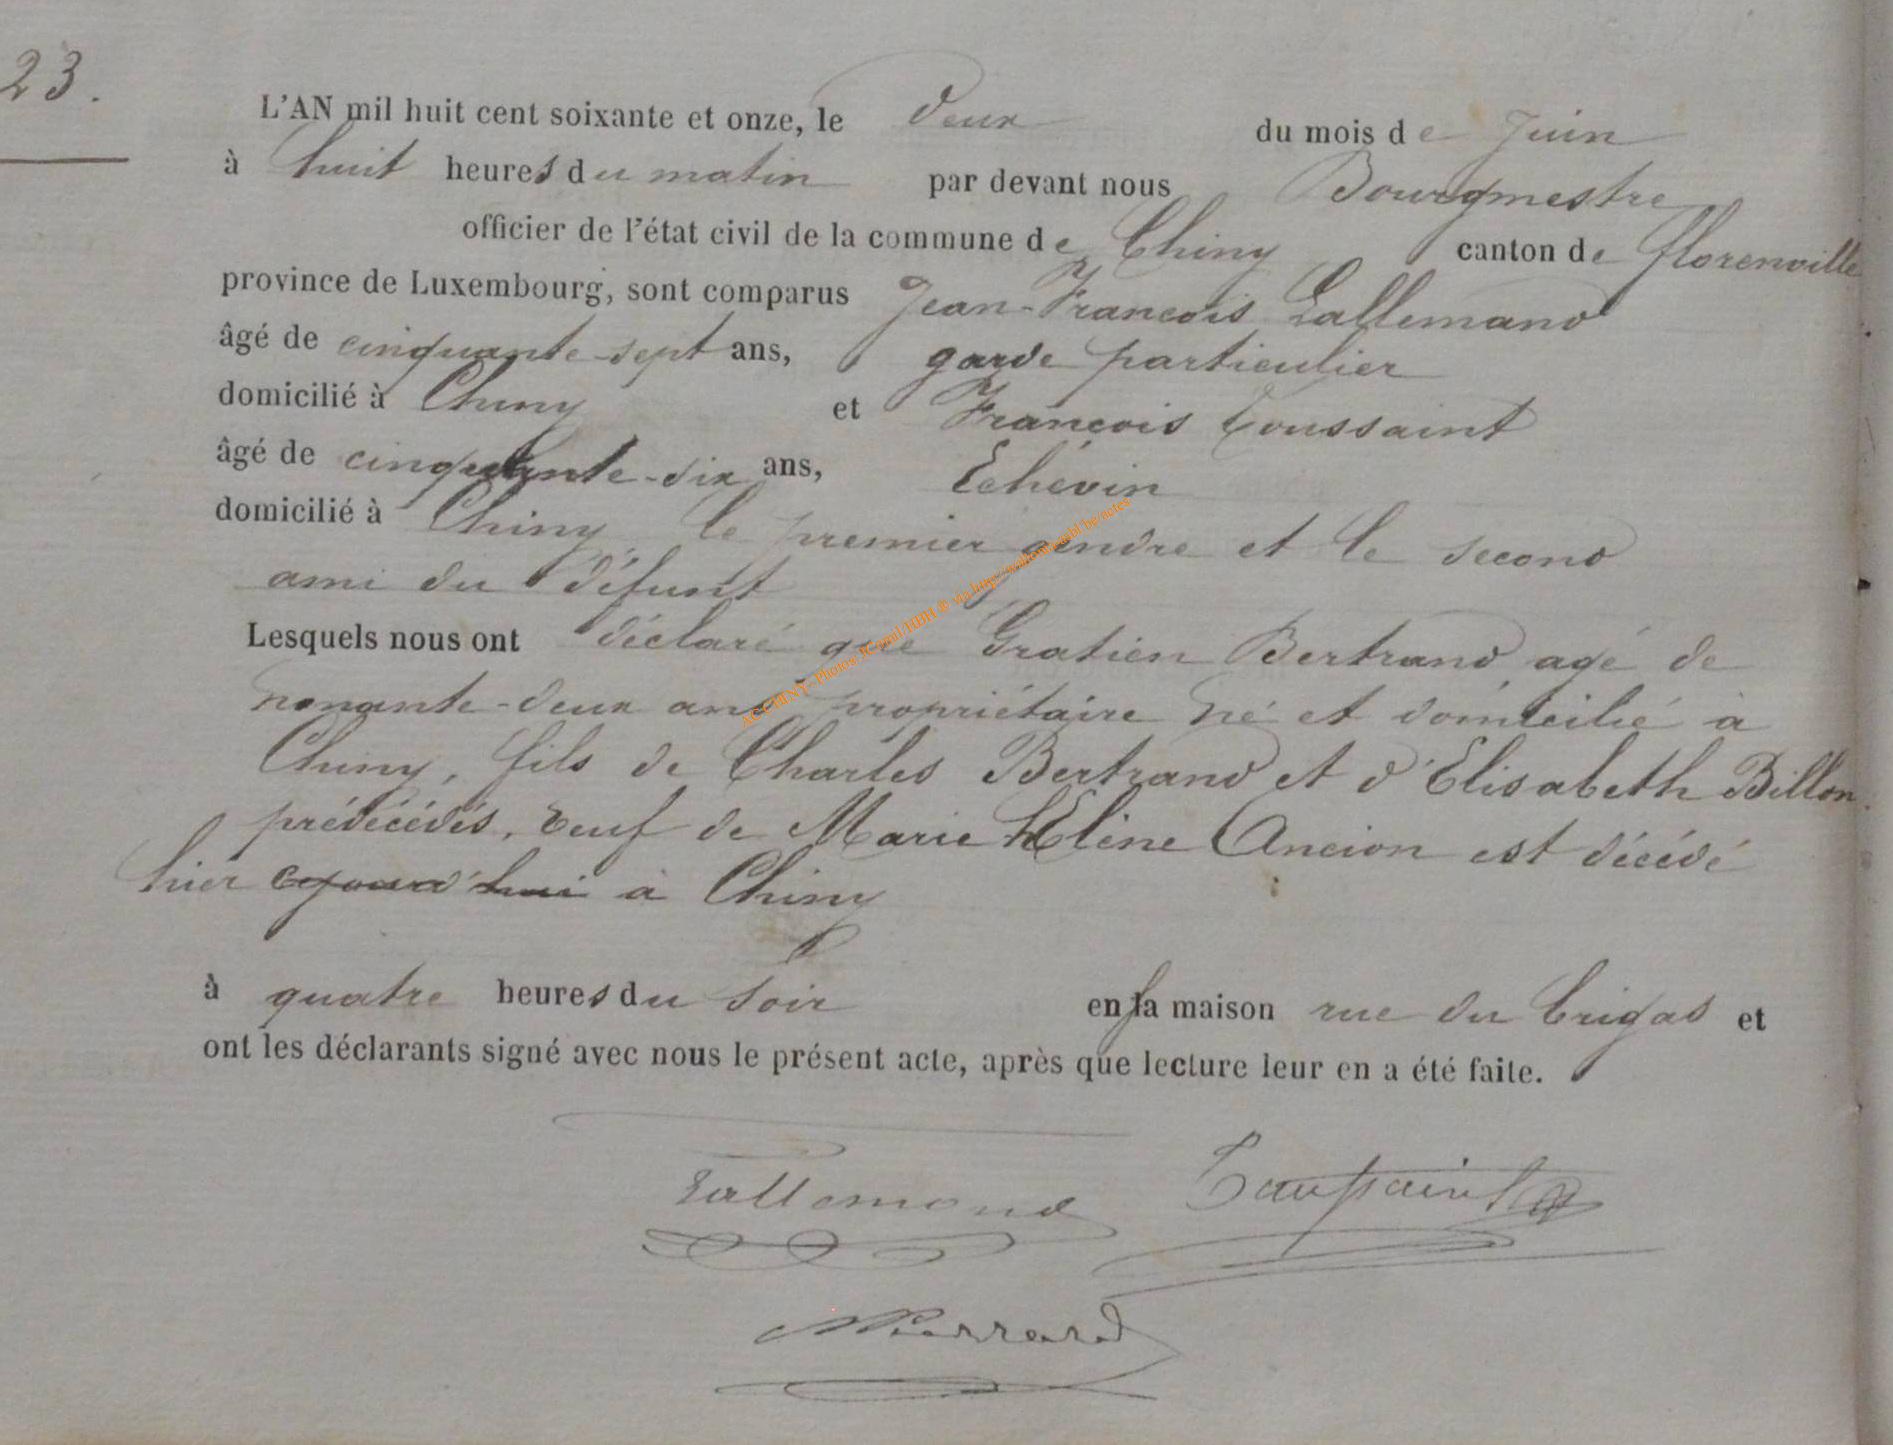 23.
L'AN mil huit cent soixante et onze, le deux du mois de Juin
à huit heures du matin par devant nous Bourgmestre
officier de l'état civil de la commune de Chiny canton de florenville
province de Luxembourg, sont comparus Jean-François Lallemand
âgé de cinquante-sept ans, garde particulier
domicilié à Chiny et François Toussaint
âgé de cinquante-six ans, Echévin
domicilié à Chiny le premier gendre et le second
ami du défunt
Lesquels nous ont déclaré que Gratien Bertrand agé de
nonante-deux ans propriétaire né et domicilié à
Chiny, fils de Charles Bertrand et d'Elisabeth Billon
prédécédés, veuf de Marie Hélène Ancion est décédé
hier cejourd'hui à Chiny
à quatre heures du soir en sa maison rue du Trigas et
ont les déclarants signé avec nous le présent acte, après que lecture leur en a été faite.
Lallemand Toussaint
Pierrard
ACCHINY- Photos JCamil HBH © via http://